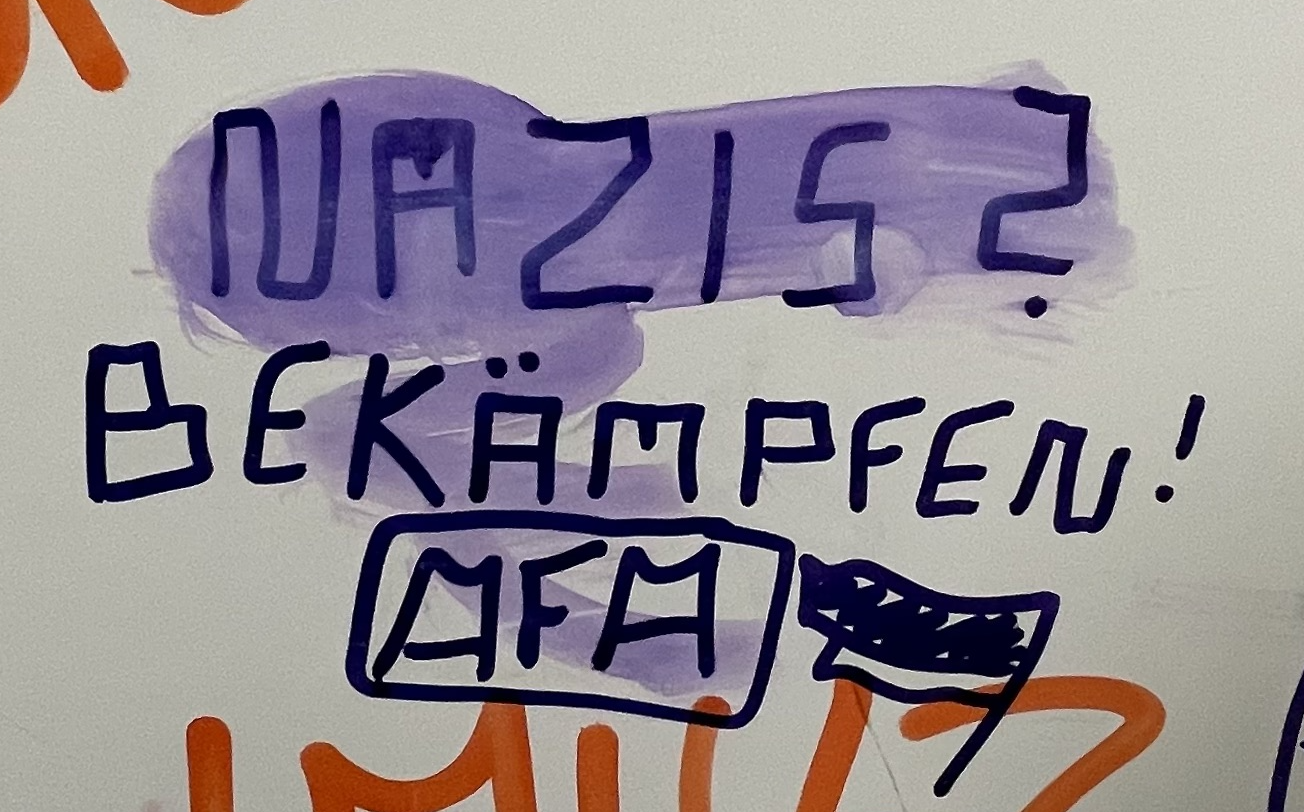 NAZIS?
BEKÄMPFEN!
AFA